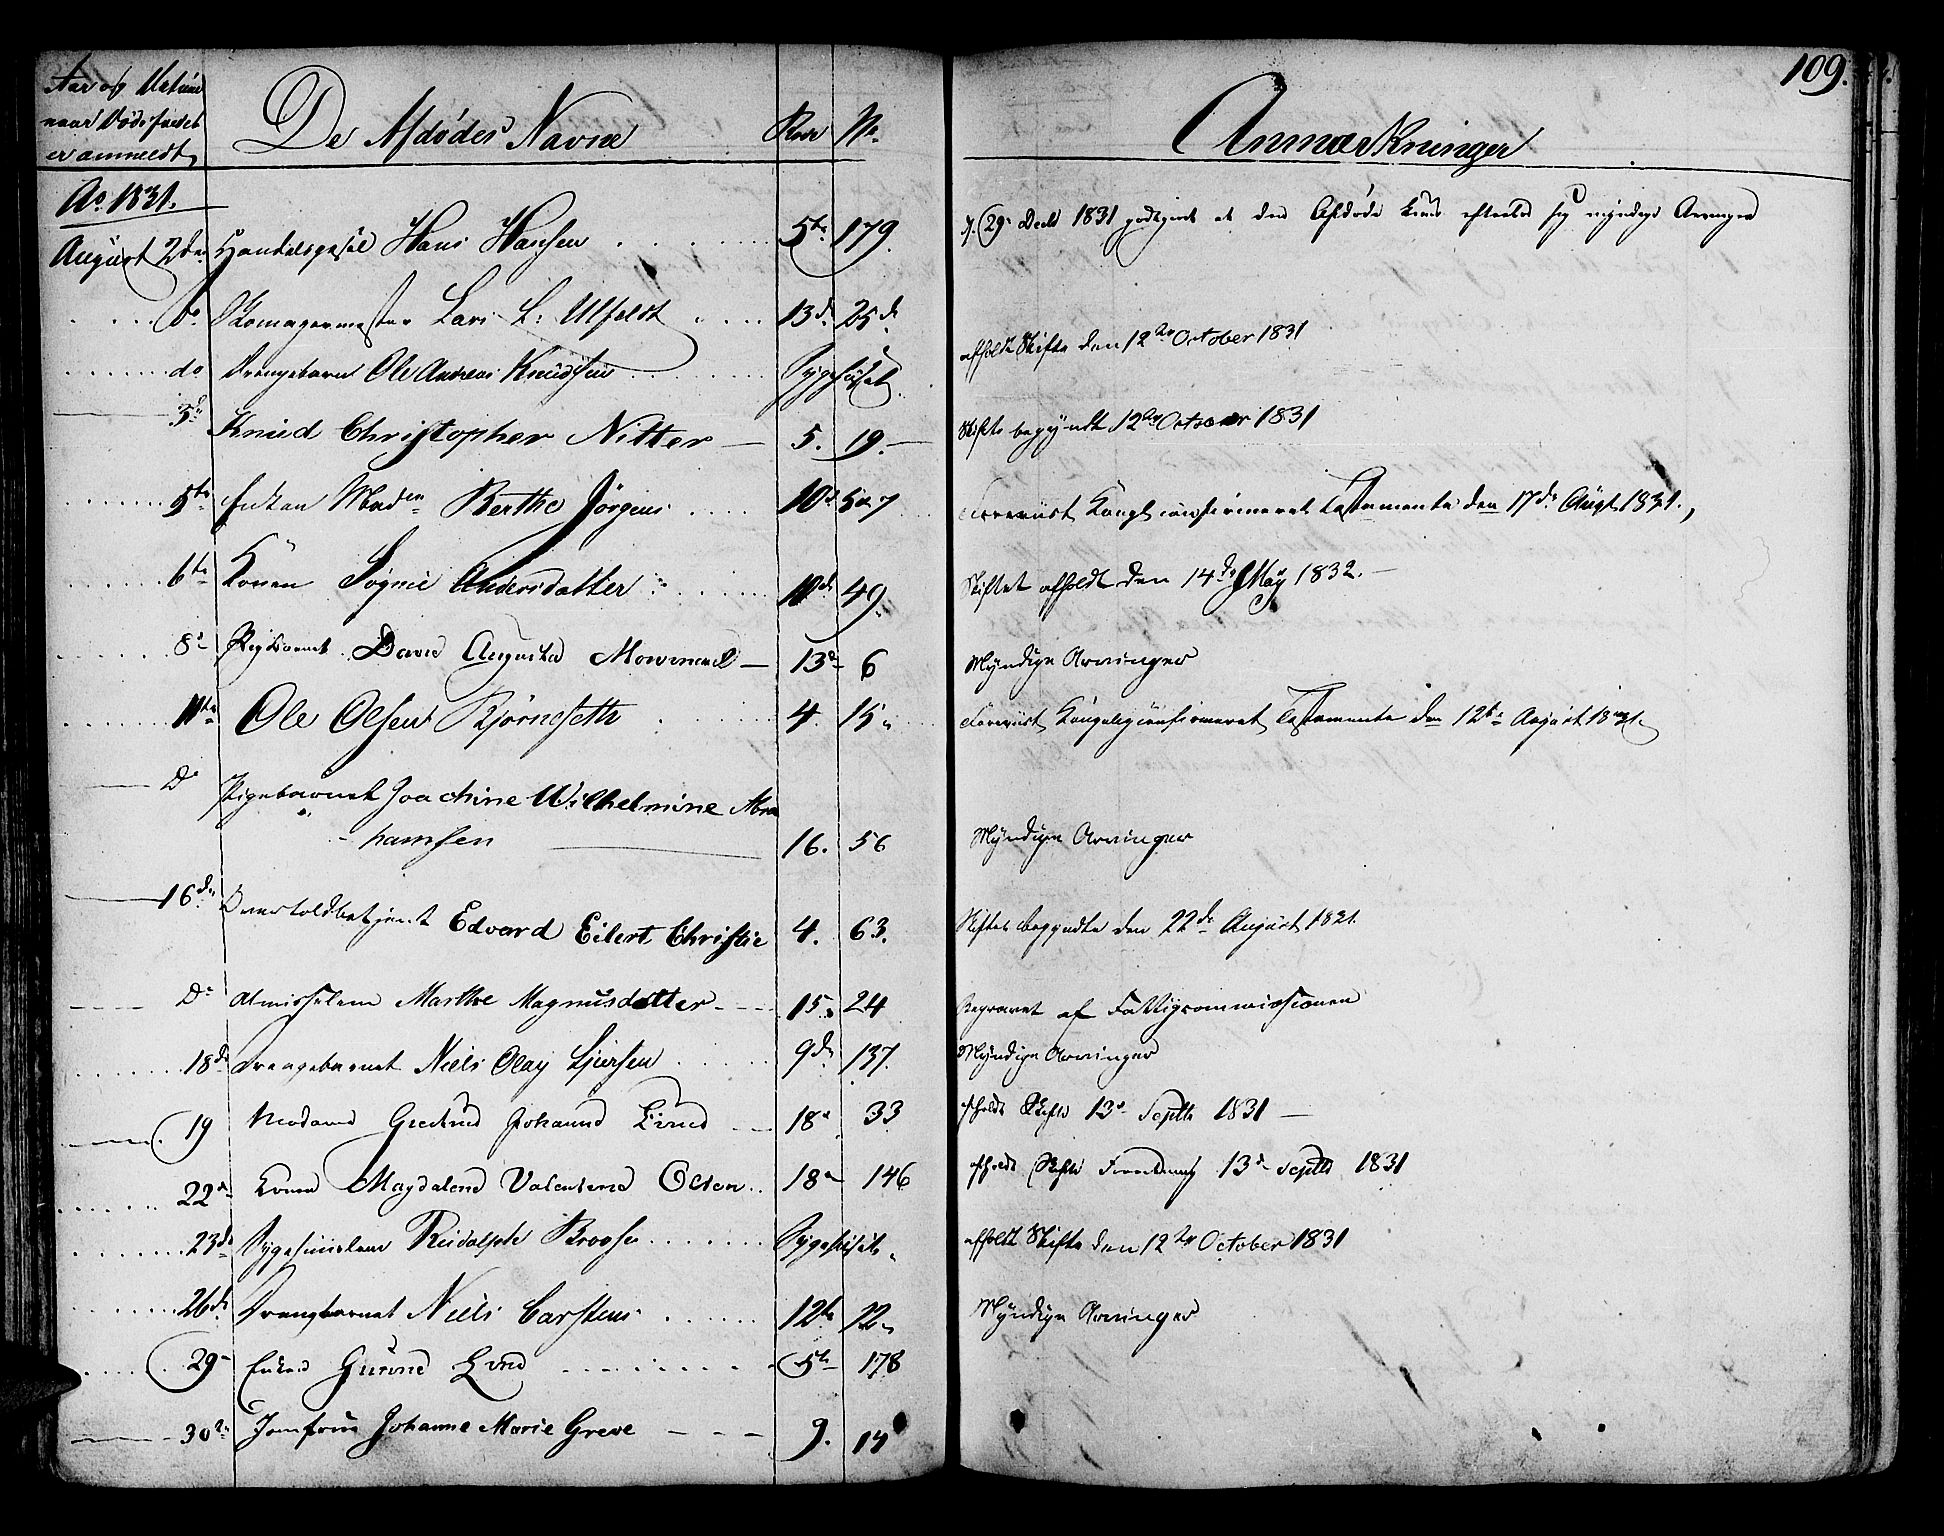 109.
Aar og Datum
naar Dødsfaldet
er anmeldt
De Afdødes Navne
Rode
No.
Anmærkninger
Ao. 1831.
August 2den Handelsgesel Hans Hansen 5te 179. d. 29. Decb 1831 godtgjort at den Afdøde kuns efterlod sig myndige Arvinger
do Skomagermester Lars L. Ulfeldt 13de 25de
do Drengebarn Ole Andreas Knudsen Sygehuset. afholdt Skifte den 12te October 1831
3de Knud Christopher Nitter 5. 19. Skifte begyndt 12te October 1831
5te Enken Madm Berthe Jørgens 10de 507 Foreviist Kongl confirmeret Testamente den 17de Augt 1831.
6te Konen Sognie Andersdatter 10de 49. Skiftet afholdt den 14de May 1832.
8de Pigebarnet David Augusta Mowinckel 13de 6 Myndige Arvinger
11te Ole Olsen Bjørneseth 4. 15. Foreviist Kongelig confirmeret Testamente den 12te August 1831.
Do Pigebarnet Joachine Wilhelmine Abra
hamsen 16. 56 Myndige Arvinger
16de Overtoldbetjent Edvard Eilert Christie 4. 63. Skiftet begyndte den 22de August 1831.
Do Almisselem Marthe Magnusdatter 15. 24 Begravet af Fattigcommissionen
18de Drengebarnet Niels Olay Sjursen 9de 137. Myndige Arvinger
19 Madame Giertrud Johanne Lund 18de 33 afholdt Skifte 13de Septb 1831
22de Konen Magdalene Valentine Olsen 18de 146 afholdt Skifte Forretning 13de Septb 1831
23de Sygehuuslem Rudolph Broose Sygehuset. afholdt Skifte den 12te October 1831
26de Drengbarnet Niels Carstens 12te 22. Myndige Arvinger
29de Enken Gurine Lund 5te 178
30te Jomfrue Johanne Marie Greve 9. 14